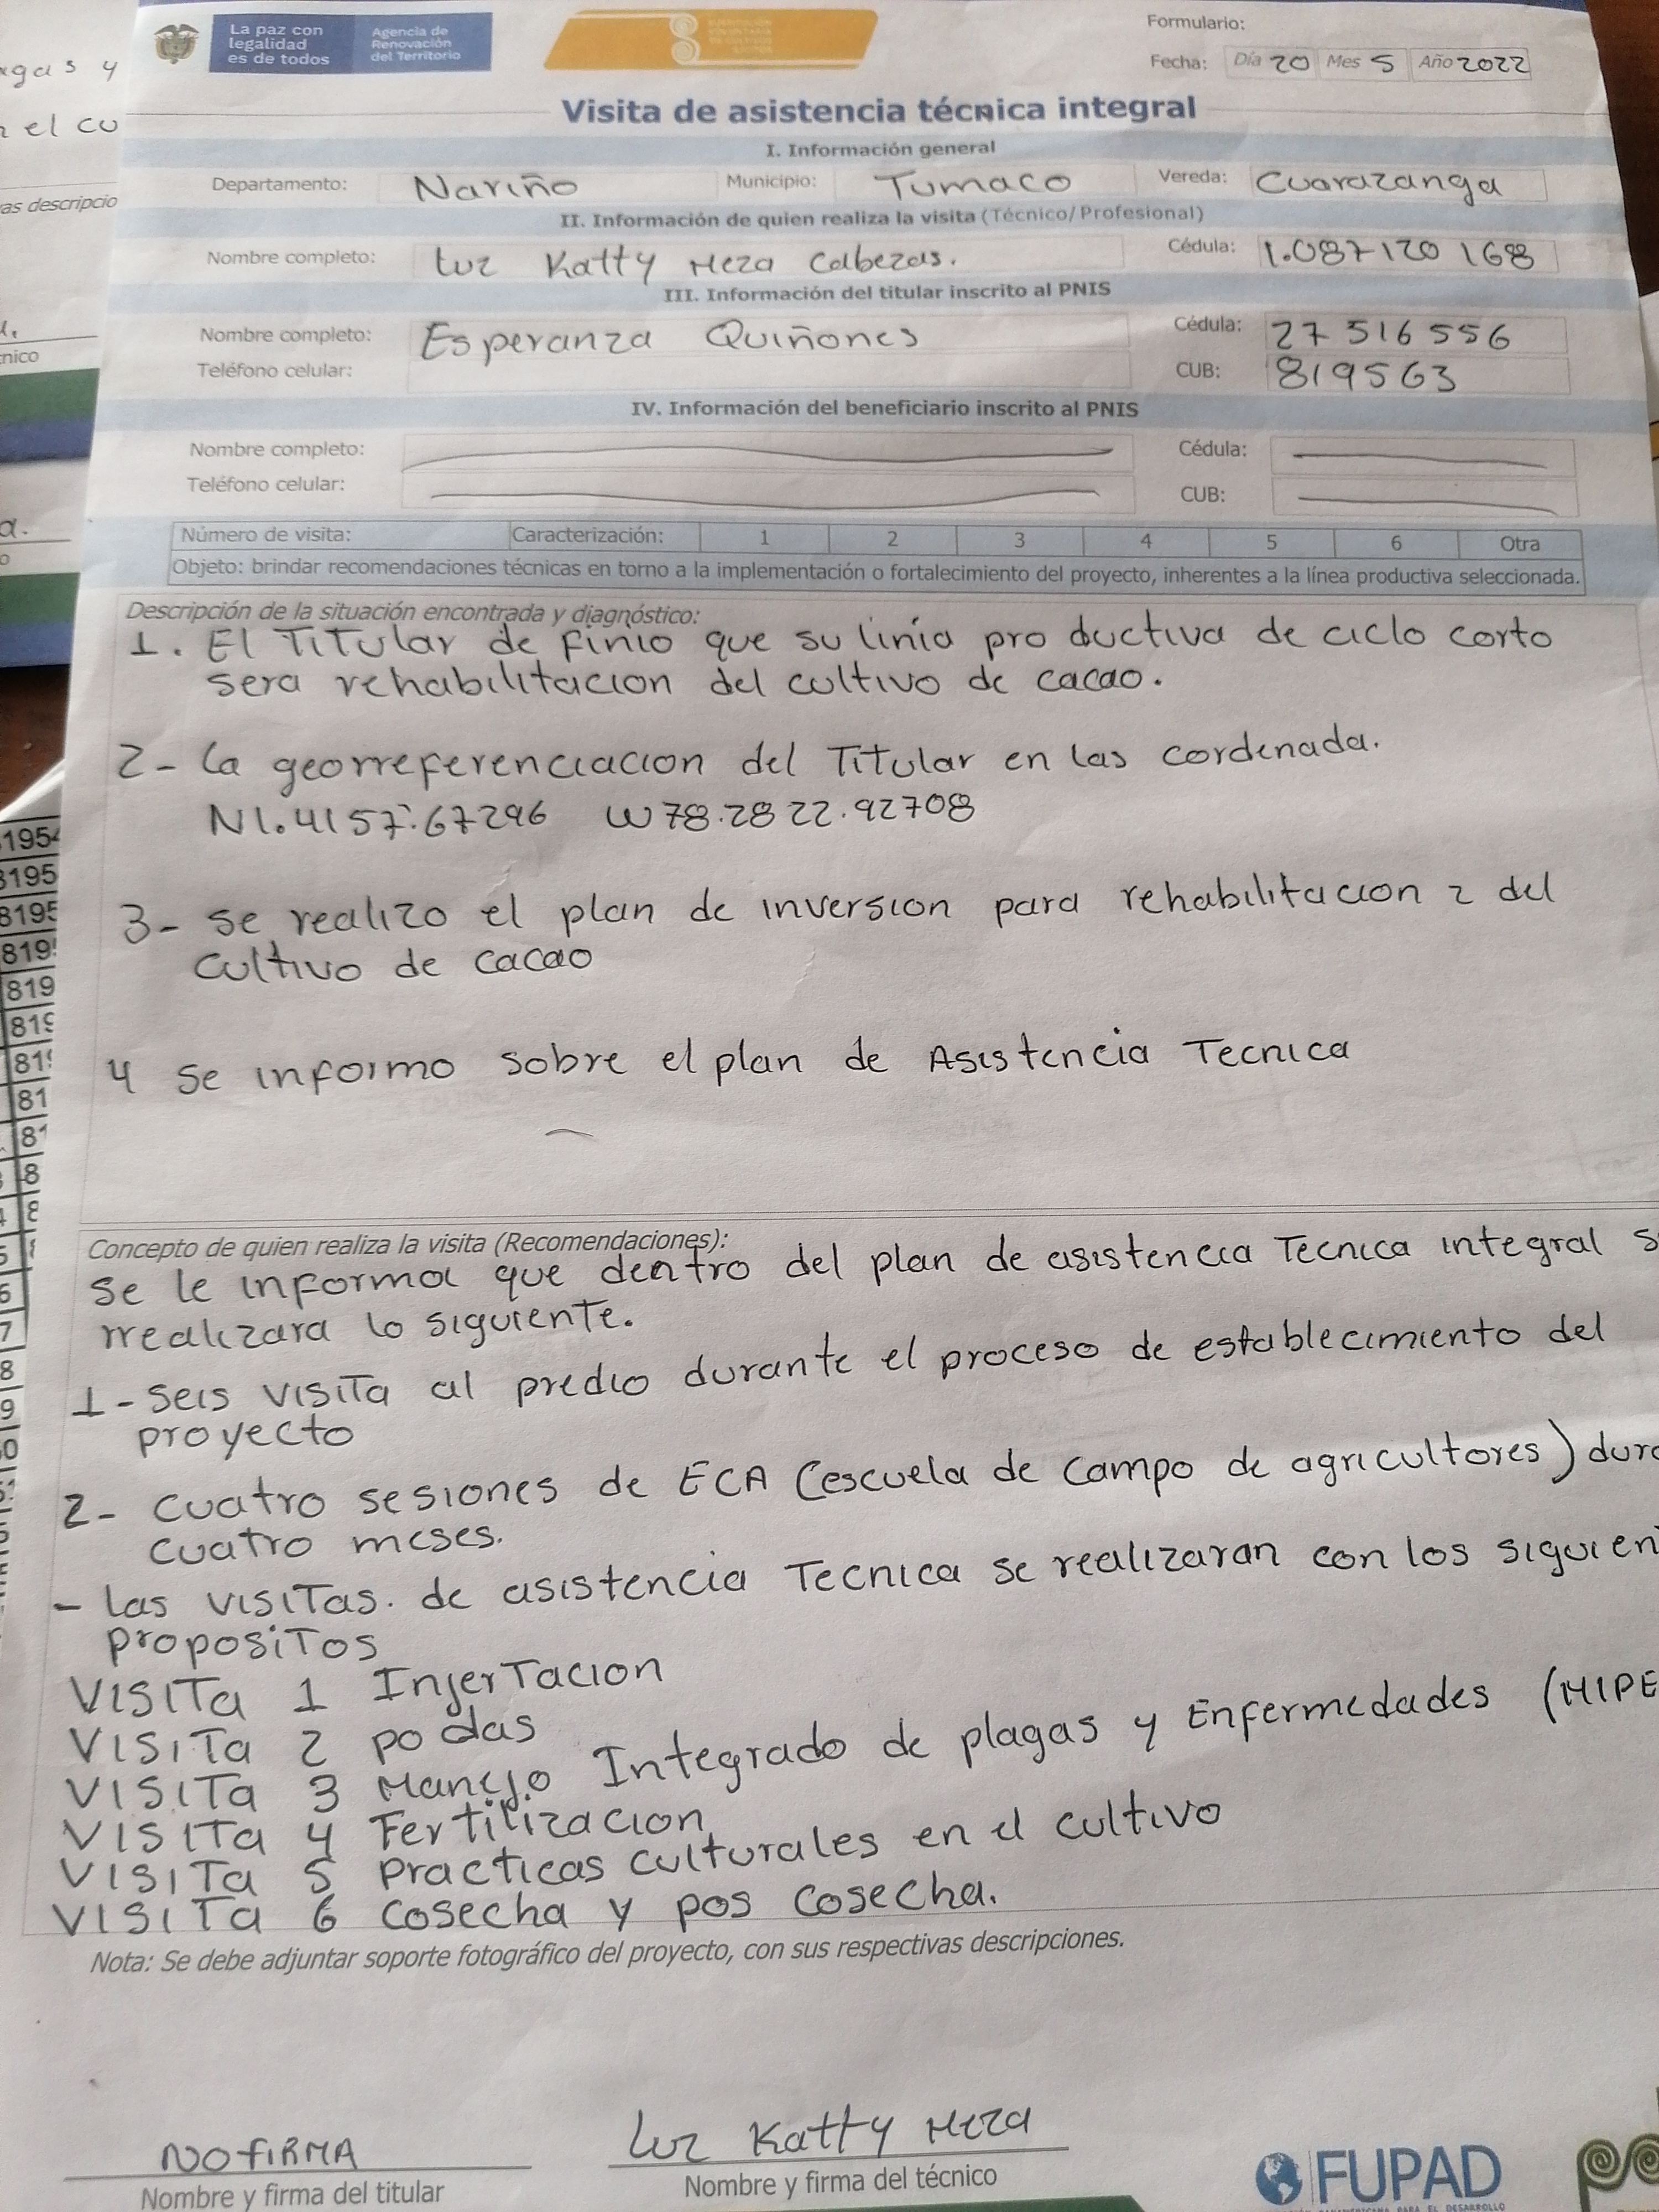 La paz con
legalidad
es de todos
Agencia de
Renovación
del Territorio
Formulario:
Fecha: Día 20 Mes 5 Año 2022
Visita de asistencia técnica integral
I. Información general
Departamento: Nariño Municipio: Tumaco Vereda: Cuarazanga
II. Información de quien realiza la visita (Técnico/Profesional)
Nombre completo: Luz Katty Meza Cabezas. Cédula: 1.087120 168
III. Información del titular inscrito al PNIS
Nombre completo: Esperanza Quiñones Cédula: 27 516 556
Teléfono celular: CUB: 819563
IV. Información del beneficiario inscrito al PNIS
Nombre completo: Cédula:
Teléfono celular: CUB:
Número de visita: Caracterización: 1 2 3 4 5 6 Otra
Objeto: brindar recomendaciones técnicas en torno a la implementación o fortalecimiento del proyecto, inherentes a la línea productiva seleccionada.
Descripción de la situación encontrada y diagnóstico:
1. El Titular de finio que su linia pro ductiva de ciclo corto
sera rehabilitacion del cultivo de cacao.
2- la georreferenciacion del Titular en las cordenada.
N1.4157.67296 W78.28 22.92708
3- se realizo el plan de inversion para rehabilitacion 2 del
cultivo de cacao
4 se informo sobre el plan de Asistencia Tecnica
Concepto de quien realiza la visita (Recomendaciones):
se le informa que dentro del plan de asistencia Tecnica integral s
rrealizara lo siguiente.
1- seis visita al predio durante el proceso de establecimiento del
proyecto
2- cuatro sesiones de ECA (escuela de campo de agricultores) dura
cuatro meses.
- las visitas. de asistencia Tecnica se realizaran con los siguien
propositos
VISITa 1 InjerTacion
VISITa 2 po das
VISITa 3 Manejo Integrado de plagas y Enfermedades (MIPE
VISITa 4 Fertilizacion
VISITa 5 practicas culturales en el cultivo
VISITa 6 cosecha y pos cosecha.
Nota: Se debe adjuntar soporte fotográfico del proyecto, con sus respectivas descripciones.
NO FIRMA
Nombre y firma del titular
Luz Katty Meza
Nombre y firma del técnico
FUPAD